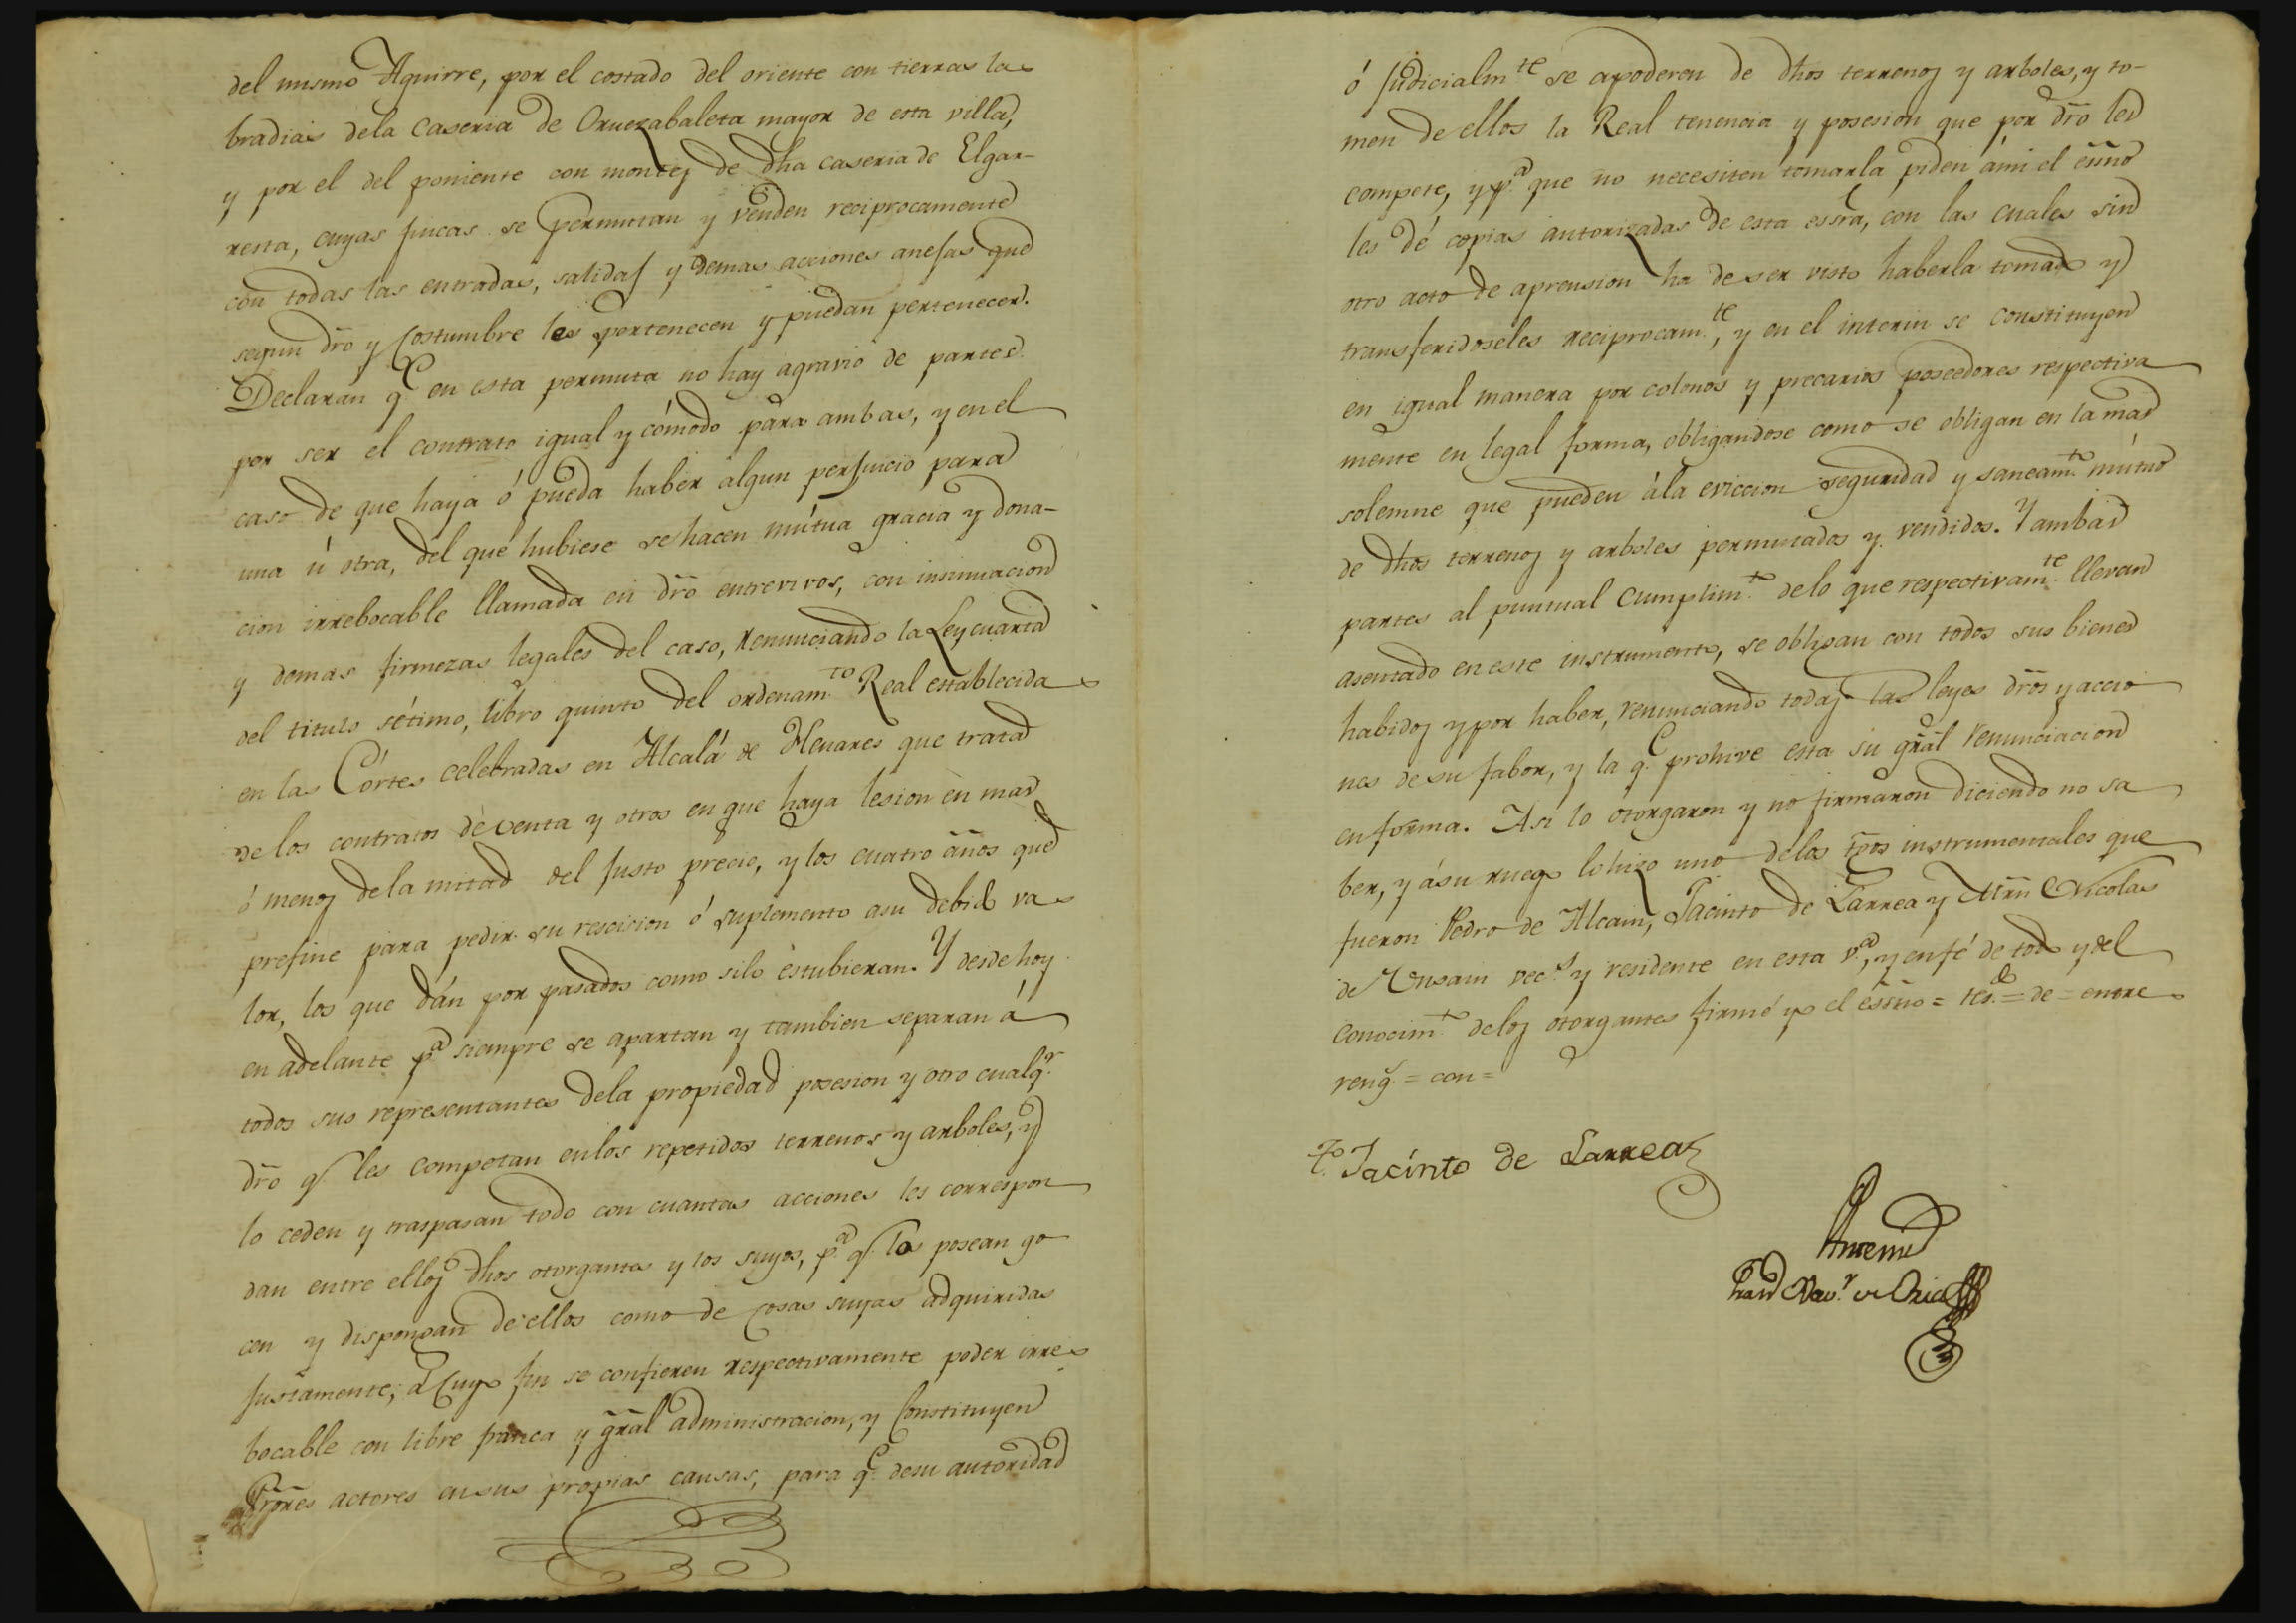 del mismo Aguirre, por el costado del oriente con tierras la
bradias dela Caseria de Oruezabaleta mayor de esta villa,
y por el del poniente con montes de dha caseria de Elgar-
resta, cuyas fincas se permutan y venden reciprocamente
con todas las entradas, salidas y demas acciones anejas que
segun dro y costumbre les pertenecen y puedan pertenecer.
Declaran q.e en esta permuta no hay agravio de partes
por ser el contrato igual y cómodo para ambas, y en el
caso de que haya ó pueda haber algun perjuicio para
una ú otra, del que hubiese se hacen mútua gracia y dona-
cion irrebocable llamada en dro entrevivos, con insinuacion
y demas firmezas legales del caso, renunciando la Ley cuarta
del titulo sétimo, libro quinto del ordenam.to Real establecida
en las Córtes celebradas en Alcalá de Henares que trata
de los contratos de venta y otros en que haya lesion en mas
ó menos dela mitad del justo precio, y los cuatro años que
prefine para pedir su rescision ó suplemento asu debido va
lor, los que dán por pasados como silo estubieran. Y desde hoy
en adelante p.a siempre se apartan y tambien separan á
todos sus representantes dela propiedad posesion y otro cualq.r
dro q.e les competan enlos repetidos terrenos y arboles, y
lo ceden y traspasan todo con cuantas acciones les correspon
dan entre ellos dhos otorgantes y los suyos, p.a q.e los posean go
cen y dispongan de ellos como de cosas suyas adquiridas
justamente; á cuyo fin se confieren respectivamente poder irre
bocable con libre franca y gral administracion, y constituyen
Prores actores ensus propias causas, para q.e desu autoridad
ó judicialm.te se apoderen de dhos terrenos y arboles, y to-
men de ellos la Real tenencia y posesion que por dro les
compete, y p.a que no necesiten tomarla piden ámi el essno
les dé copias autorizadas de esta essra, con las cuales sin
otro acto de aprension ha de ser visto haberla tomado y
transferidoseles reciprocam.te, y en el interin se constituyen
en igual manera por colonos y precarios poseedores respectiva
mente en legal forma, obligandose como se obligan en la mas
solemne que pueden ála eviccion seguridad y saneam.to mútuo
de dhos terrenos y arboles permutados y vendidos. Y ambas
partes al puntual cumplim.to delo que respectivam.te llevan
asentado en este instrumento, se obligan con todos sus bienes
habidos y por haber, renunciando todas las leyes dros y accio
nes de su fabor, y la q.e prohive esta su gral renunciacion
en forma. Asi lo otorgaron y no firmaron diciendo no sa
ber, y ásu ruego lo hizo uno delos tgos instrumentales que
fueron Pedro de Alcain, Jacinto de Larrea y Mrn Nicolas
de Unsain vec.s y residente en esta v.a, y enfé de todo y del
conocim.to delos otorgantes firmé yo el essno = tes.do = de = entre
reng.s = con =
T.o Jacinto de Larrea
Antemi